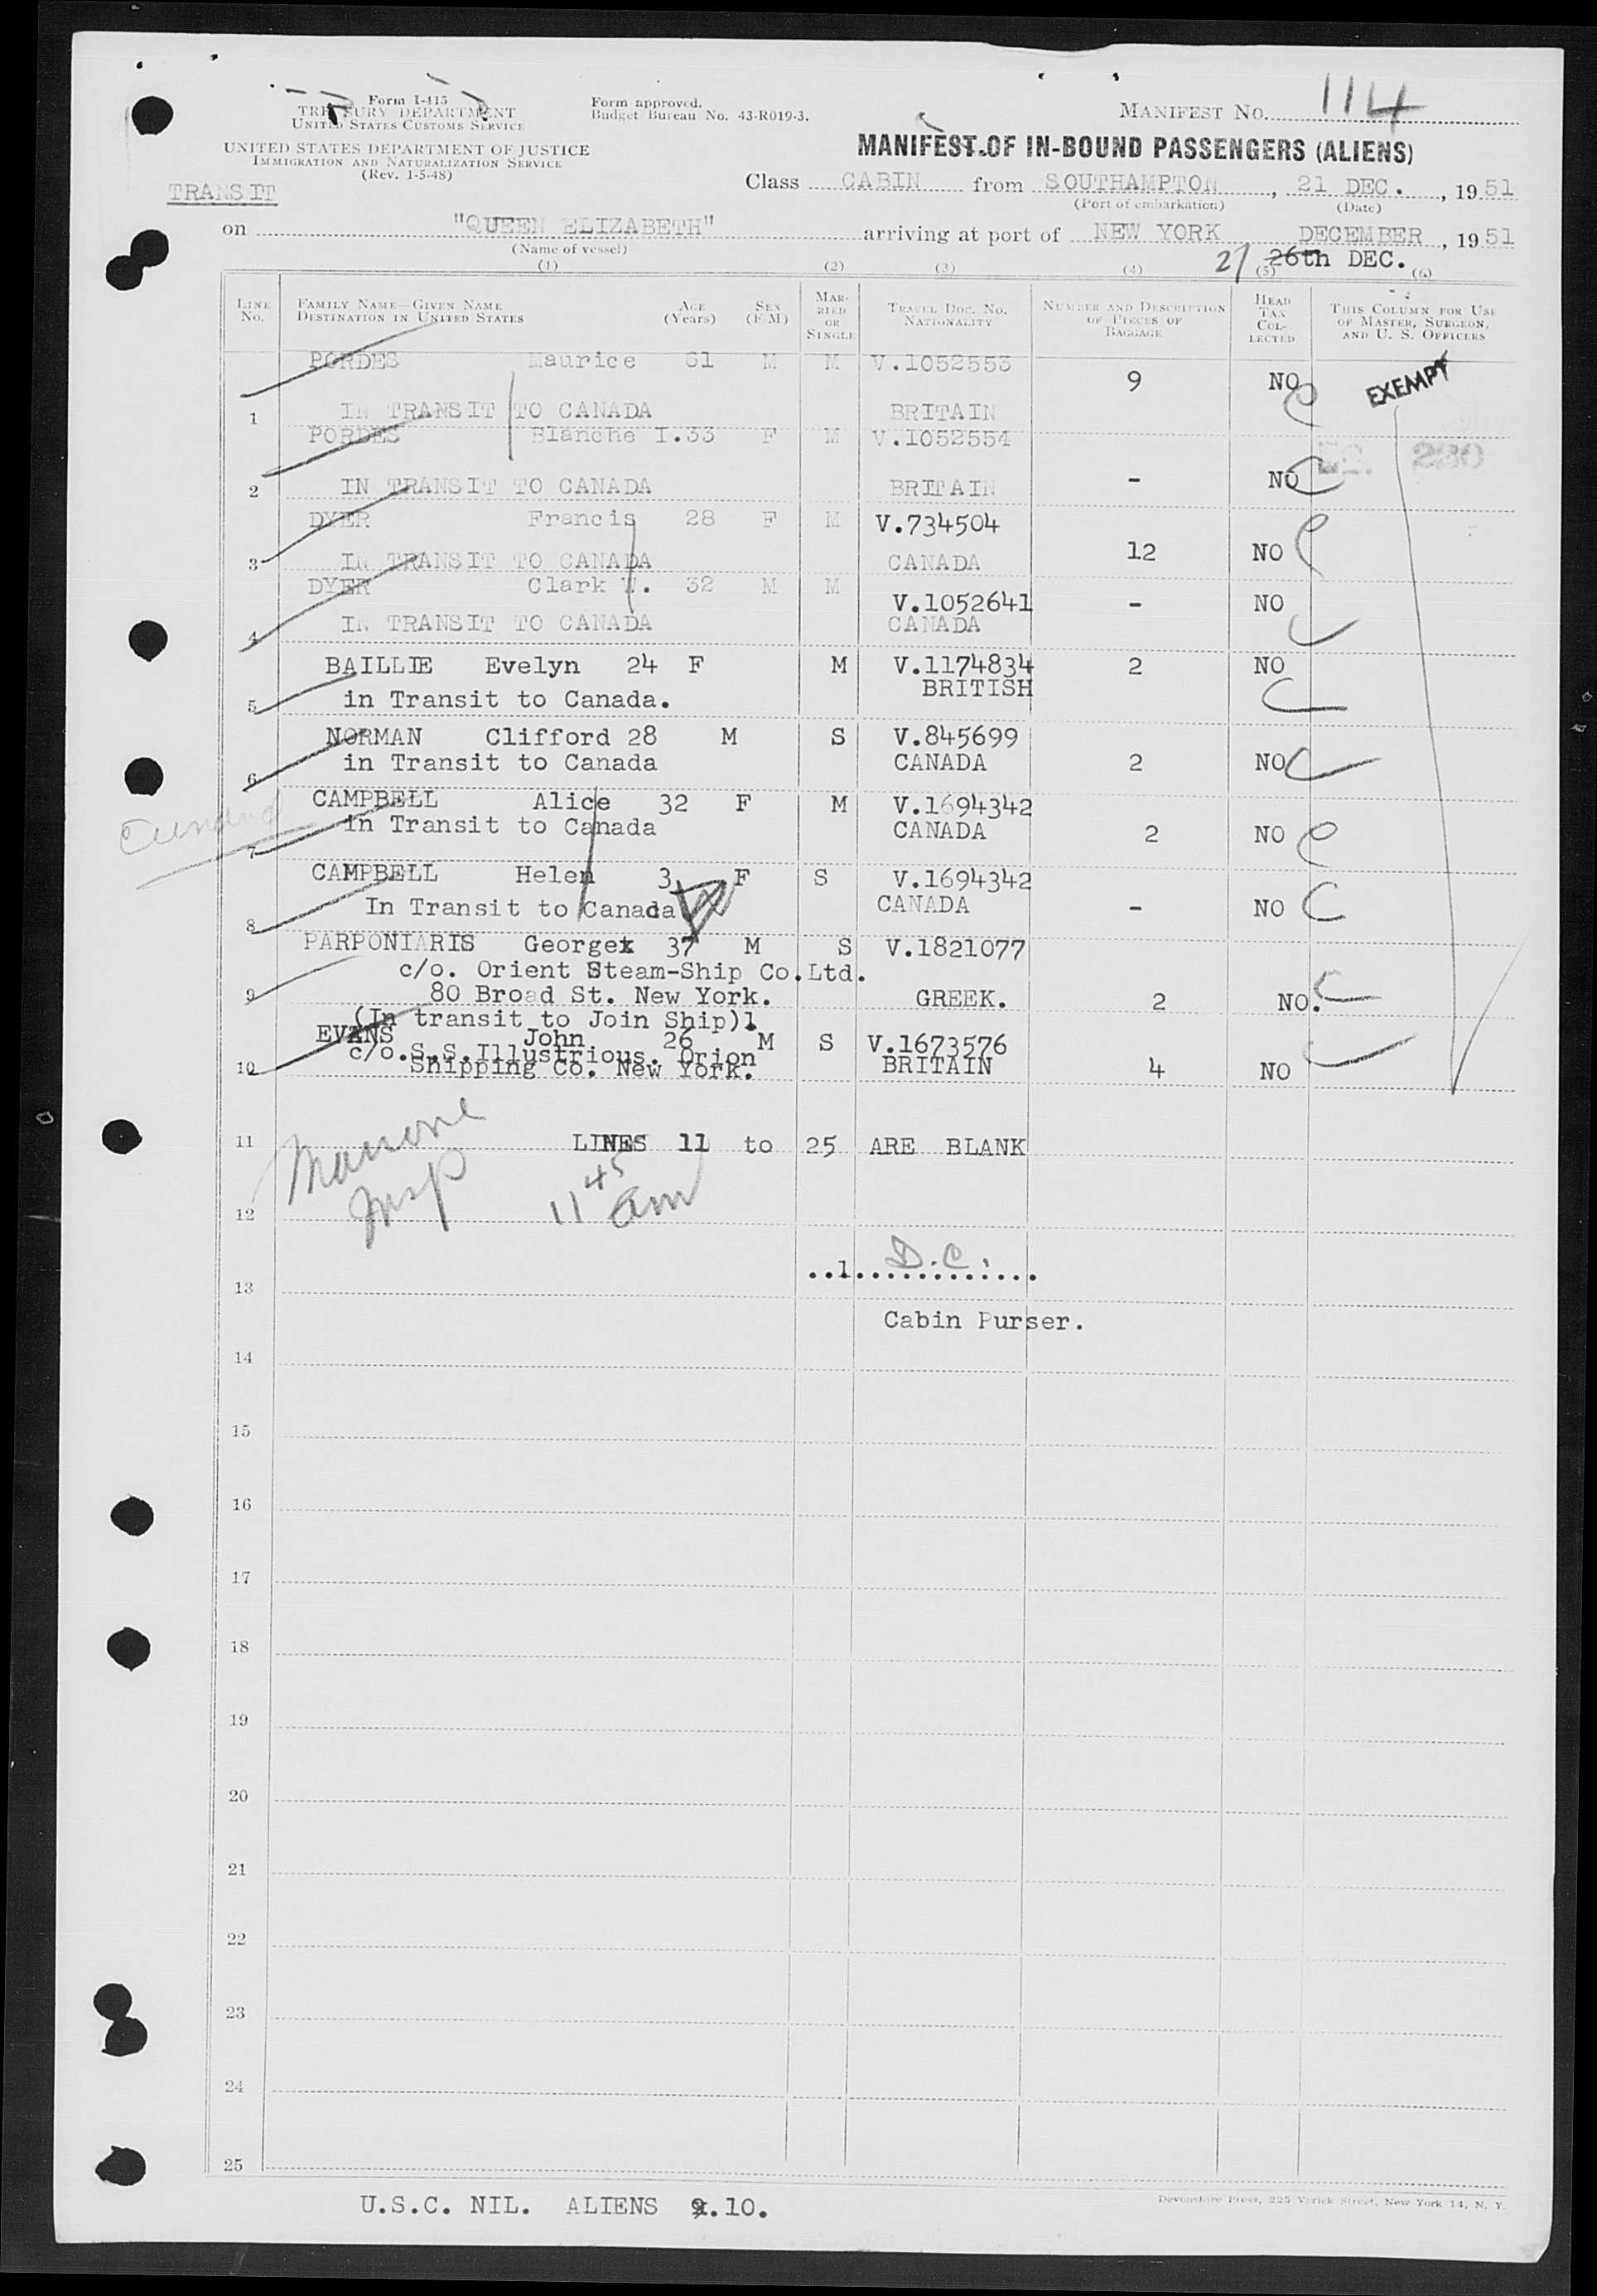 Form I-415
TREASURY DEPARTMENT
UNITED STATES CUSTOMS SERVICE
UNITED STATES DEPARTMENT OF JUSTICE
IMMIGRATION AND NATURALIZATION SERVICE
(Rev. 1-5-48)
Form approved.
Budget Bureau No. 43-R019-3.
MANIFEST NO. 114
MANIFEST OF IN-BOUND PASSENGERS (ALIENS)
TRANSIT
Class CABIN from SOUTHAMPTON, 21 DEC., 1951
(Port of embarkation) (Date)
on "QUEEN ELIZABETH" arriving at port of NEW YORK DECEMBER, 1951
(Name of vessel)
27 26th DEC.
(1) (2) (3) (4) (5) (6)
LINE NO. FAMILY NAME—GIVEN NAME DESTINATION IN UNITED STATES AGE (Years) SEX (F-M) MARRIED OR SINGLE TRAVEL DOC. NO. NATIONALITY NUMBER AND DESCRIPTION OF PIECES OF BAGGAGE HEAD TAX COLLECTED THIS COLUMN FOR USE OF MASTER, SURGEON, AND U. S. OFFICERS
PORDES Maurice 61 M M V.1052553 9 NO C EXEMPT
1 IN TRANSIT TO CANADA BRITAIN
PORDES Blanche I. 33 F M V.1052554
2 IN TRANSIT TO CANADA BRITAIN - NO C 230
DYER Francis 28 F M V.734504
3 IN TRANSIT TO CANADA CANADA 12 NO C
DYER Clark W. 32 M M V.1052641 - NO
4 IN TRANSIT TO CANADA CANADA C
BAILLIE Evelyn 24 F M V.1174834 2 NO
5 in Transit to Canada. BRITISH C
NORMAN Clifford 28 M S V.845699
6 in Transit to Canada CANADA 2 NO C
CAMPBELL Alice 32 F M V.1694342
7 in Transit to Canada CANADA 2 NO C
CAMPBELL Helen 3 F S V.1694342
8 In Transit to Canada CANADA - NO C
PARPONIARIS Georgex 37 M S V.1821077
c/o. Orient Steam-Ship Co.Ltd.
9 80 Broad St. New York. GREEK. 2 NO. C
(In transit to Join Ship)1
EVANS John 26 M S V.1673576
c/o.S.S.Illustrious. Orion
10 Shipping Co. New York. BRITAIN 4 NO
11 LINES 11 to 25 ARE BLANK
Insp
11 45 am
12
D.C.
13
Cabin Purser.
14
15
16
17
18
19
20
21
22
23
24
25
U.S.C. NIL. ALIENS 9.10.
Devonshire Press, 225 Varick Street, New York 14, N. Y.